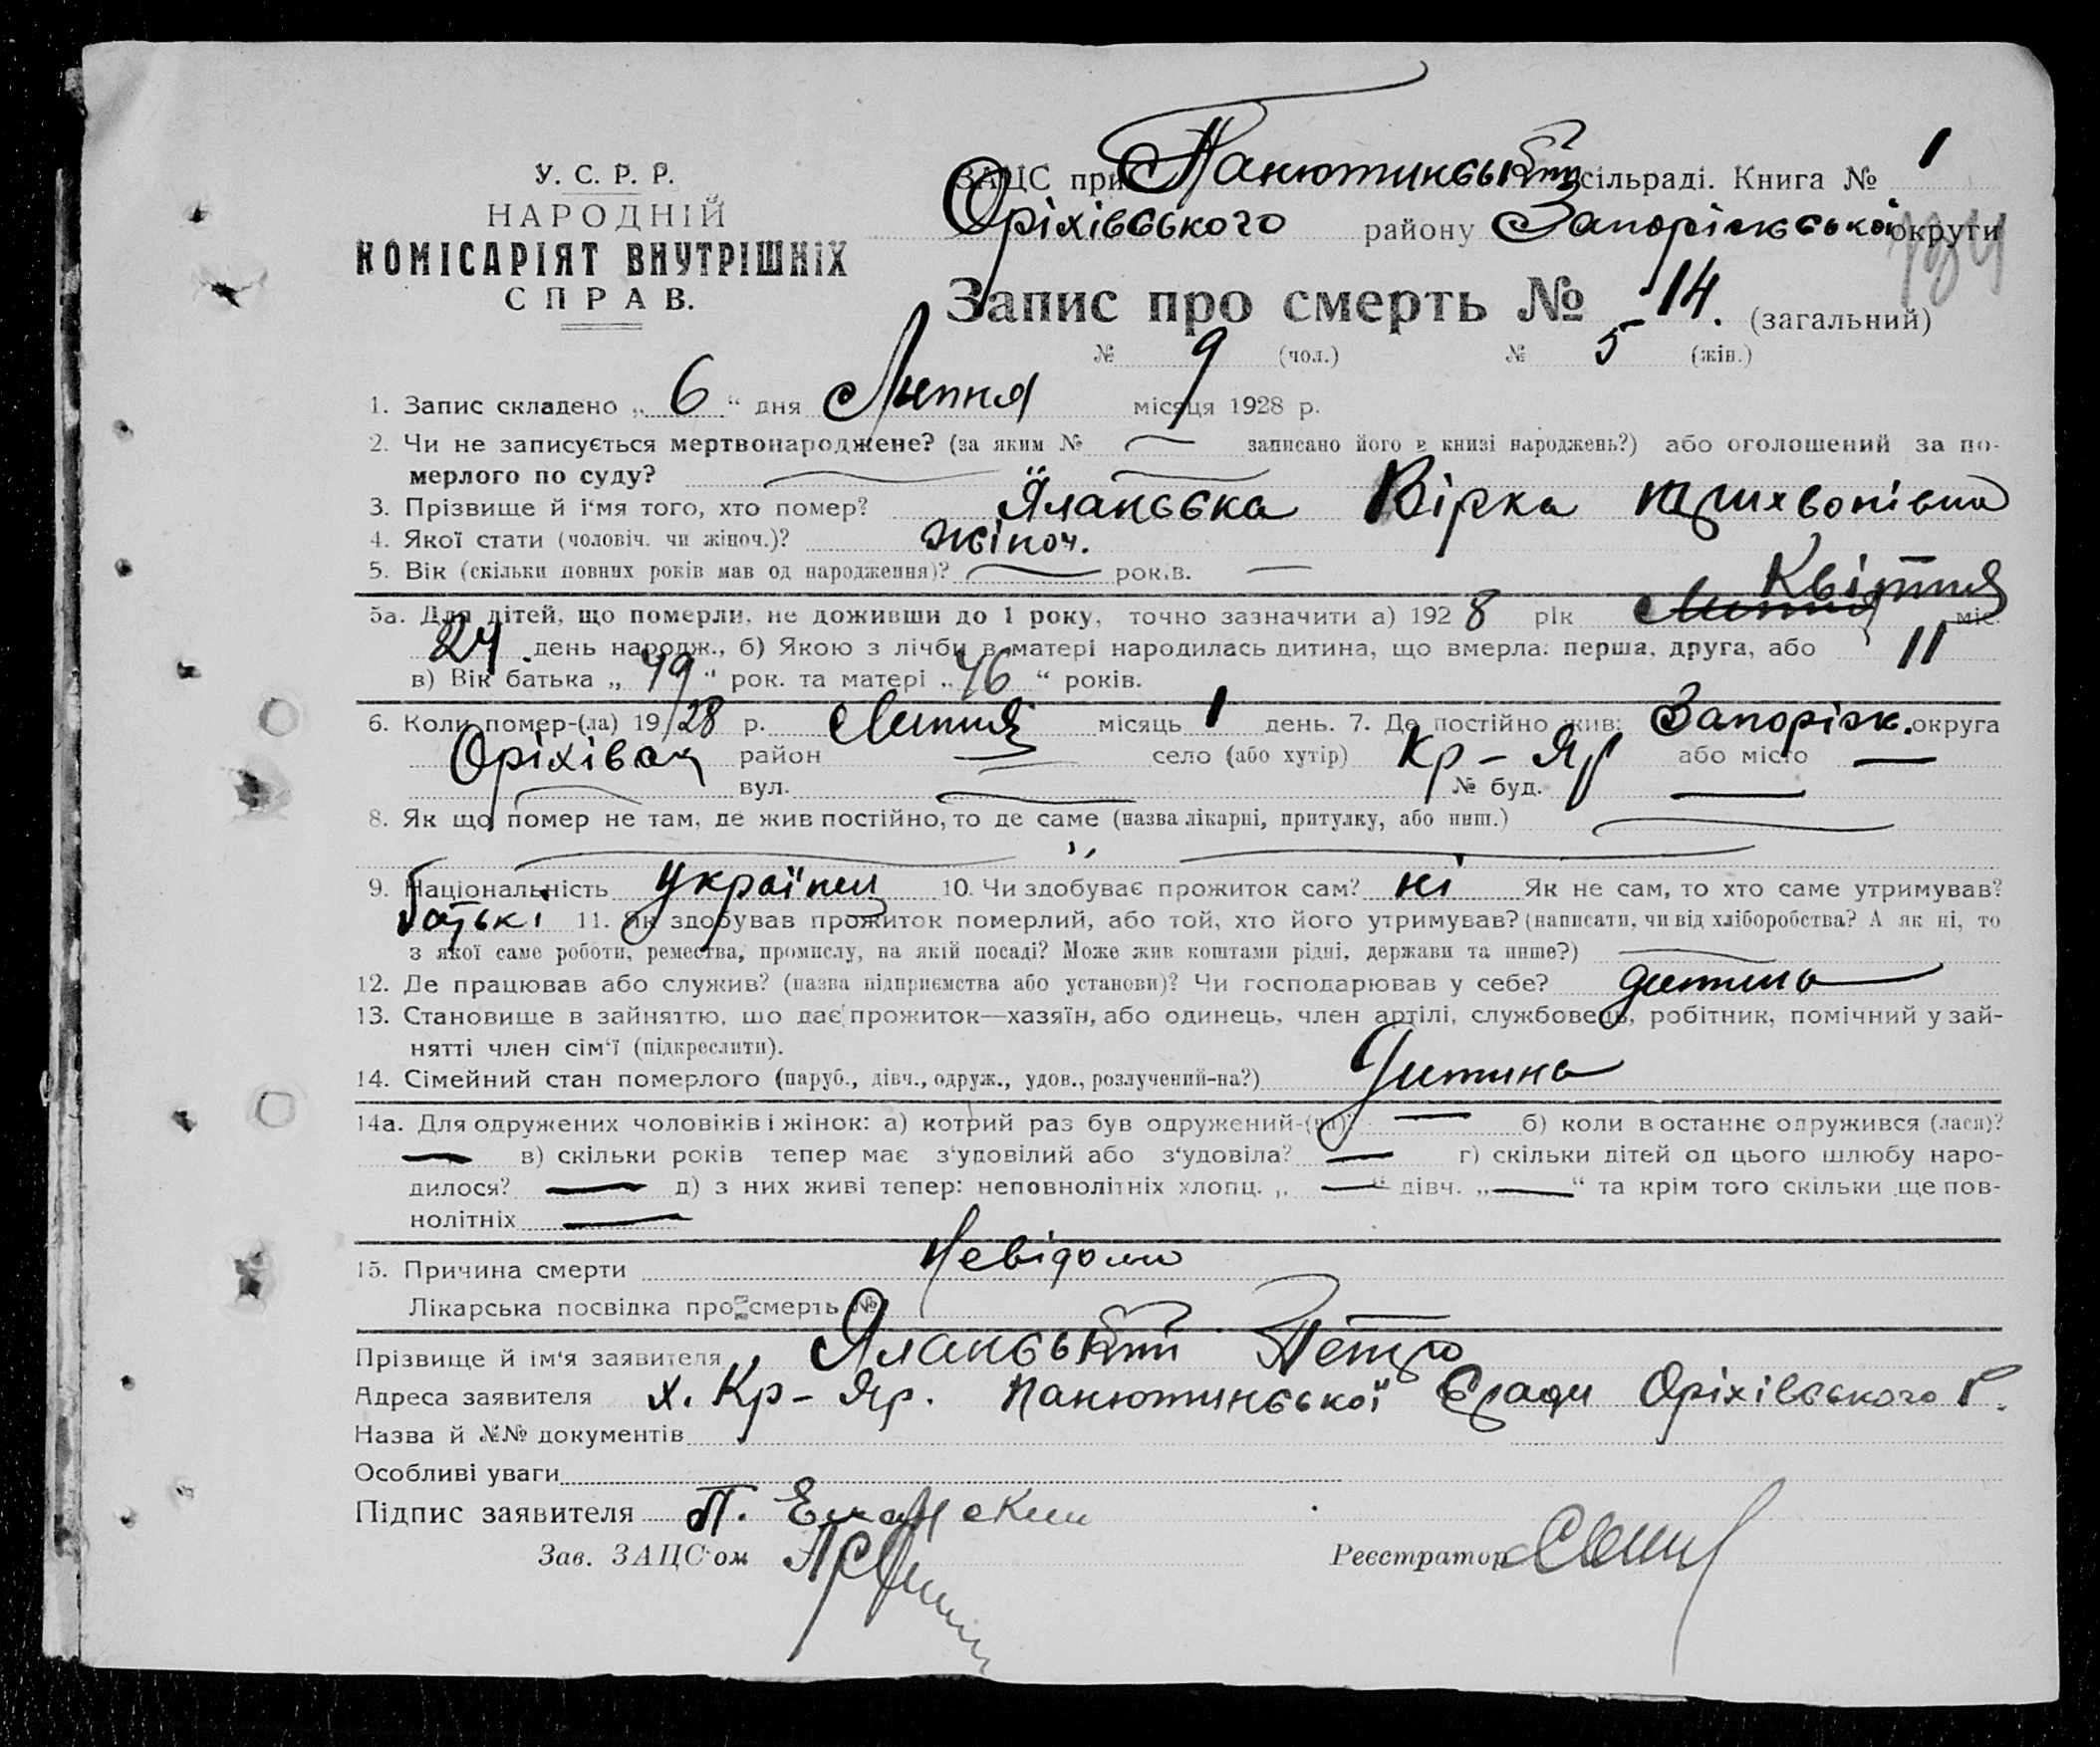 У. С. Р. Р.
НАРОДНІЙ
КОМІСАРІЯТ ВНУТРІШНІХ
СПРАВ.
ЗАЦС при Панютинській сільраді. Книга № 1
Оріхівського району Запоріжської округи
Запис про смерть № 14. (загальний)
№ 9 (чол.) № 5 (жін.)
1. Запис складено „ 6 “ дня Липня місяця 1928 р.
2. Чи не записується мертвонароджене? (за яким № — записано його в книзі народжень?) або оголошений за по-
мерлого по суду? —
3. Прізвище й і‘мя того, хто помер? Яланська Вірка Трихвонівна
4. Якої статі (чоловіч. чи жіноч.)? жіноч.
5. Вік (скільки повних років мав од народження)? — років. —
5а. Для дітей, що померли, не доживши до 1 року, точно зазначити а) 1928 рік Липня Квітня міс.
24 день народж., б) Якою з лічби в матері народилась дитина, що вмерла: перша, друга, або 11
в) Вік батька „ 49 “ рок. та матері „ 46 “ років.
6. Коли помер-(ла) 19 28 р. Липня місяць 1 день. 7. Де постійно жив: Запоріж. округа
Оріхівськ район — село (або хутір) Кр – Яр або місто —
— вул. — № буд. —
8. Як що помер не там, де жив постійно, то де саме (назва лікарні, притулку, або инш.) —
— „ —
9. Національність Українц 10. Чи здобуває прожиток сам? ні Як не сам, то хто саме утримував?
батькі 11. Як здобував прожиток померлий, або той, хто його утримував? (написати, чи від хліборобства? А як ні, то
з якої саме роботи, ремества, промислу, на якій посаді? Може жив коштами рідні, держави та инше?) —
12. Де працював або служив? (назва підприємства або установи)? Чи господарював у себе? дитина
13. Становище в зайняттю, що дає прожиток—хазяїн, або одинець, член артілі, службовець, робітник, помічний у зай-
нятті член сім‘ї (підкреслити).
14. Сімейний стан померлого (паруб., дівч., одруж., удов., розлучений-на?) Дитина
14а. Для одружених чоловіків і жінок: а) котрий раз був одружений-(на)? — б) коли в останнє одружився (лася)?
— в) скільки років тепер має з‘удовілий або з‘удовіла? — г) скільки дітей од цього шлюбу наро-
дилося? — д) з них живі тепер: неповнолітніх хлопц. „ — “ дівч. „ — “ та крім того скільки ще пов-
нолітніх —
15. Причина смерти Невідома
Лікарська посвідка про смерть №
Прізвище й ім‘я заявителя Яланський Петро
Адреса заявителя х. Кр – Яр. Панютинської с/ради Оріхівського Р.
Назва й №№ документів
Особливі уваги
Підпис заявителя П. Еланский
Зав. ЗАЦС‘ом
Реєстратор